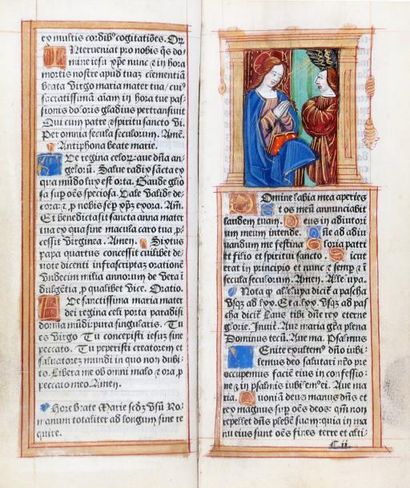 ex multis cordib9 cogitatiões. Or
Interveniat pro nobis q̃s do
mine iesu xp̃e nunc ⁊ in hora
mortis nostre apud tuã clementiã
beata virgo maria mater tua / cui9
sacratissimã aĩam in hora tue pas
sionis doloris gladius pertransiuit
Qui cum patre ⁊ spiritu sancto vi
Per omnia secula seculorum. Amẽ.
Antiphona beate marie.
Ave regina celoꝝ: aue dñã an
geloꝝ. Salue radix sãcta ex
qua mũdo lux est orta. Gaude glio
sa sup oẽs speciosa. Vale valde de
cora: ⁊ p nobis semp xp̃m exora. Am̃.
Et benedicta sit sancta anna mater
tua ex qua sine macula caro tua p
cessit virginea. Amen. Sixtus
papa quartus concessit cuilibet de
uote dicenti infrascriptã orationem
vndecim milia annorum de vera ĩ
dulgẽtia / p qualibet vice. Oratio.
Ave sanctissima maria mater
dei regina celi porta paradisi
domina mũdi pura singularis. Tu
es virgo Tu concepisti iesuz sine
peccato. Tu peperisti creatorem et
saluatorem mundi in quo non dubi
to. Libera me ab omni malo ⁊ ora p
peccato meo. Amen.
Hore beate Marie scdz vsũ Ro
manum totaliter ad longum sine re
quire.
Domine labia mea aperies
Et os meũ annunciabit
laudem tuam. Deus in adiutori
um meum intende. Dñe ad adiu
uandum me festina Gloria patri
et filio et spiritui sancto. Sicut
erat in principio et nunc ⁊ semp ⁊ ĩ
secula seculorum. Amen. Alleluya.
Nota qp alleluya dicit ab pascha
vsqz ad lxx. Et a lxx. vsqz ad pa
scha dicit Laus tibi dñe rex eterne
glorie. Inuit. Aue maria grã plena
Dominus tecũ. Aue ma. Psalmus
Venite exultem9 dño iubi
lemus deo salutari nr̃o pre
occupemus faciẽ eius in confessio
ne: ⁊ in psalmis iubilem9 ei. Aue ma
ria. Quoniã deus manus dñs et
rex magnus sup oẽs deos: qm̃ non
repellet dñs plebẽ suam: quia in ma
nu eius sunt oẽs fines terre et alti
C ii